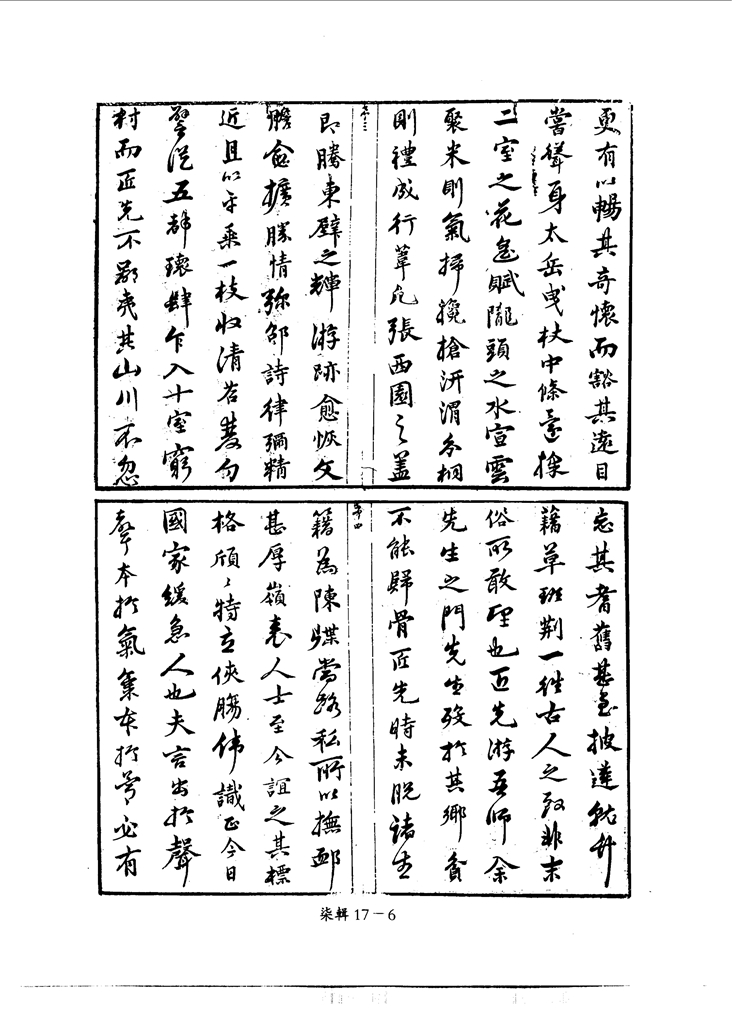 更有以暢其奇懷而豁其遠目
嘗聳身太岳曳杖中條還採
二室之花急賦隴頭之水宣雲
聚米則氣掃攙搶汧渭分桐
則禮成行葦允張西園之蓋
即勝東壁之輝游跡愈恢文
膽愈擴勝情弥邵詩律彌精
近且以平乘一枝收清苕雙勾
擎從五都瓌肆乍入十室窮
村而匠先不鄙夷其山川不忽
忘其耆舊甚至披蓬就升
藉草班荊一往古人之致非末
俗所敢望也匠先游吾師余
先生之門先生歿於其鄉貧
不能歸骨匠先時未脫諸生
籍為陳牒當路私所以撫卹
甚厚嶺表人士至今誼之其標
格頎頎特立俠腸偉識正今日
國家緩急人也夫言出於聲
聲本於氣氣本於骨必有
柒輯 17－6